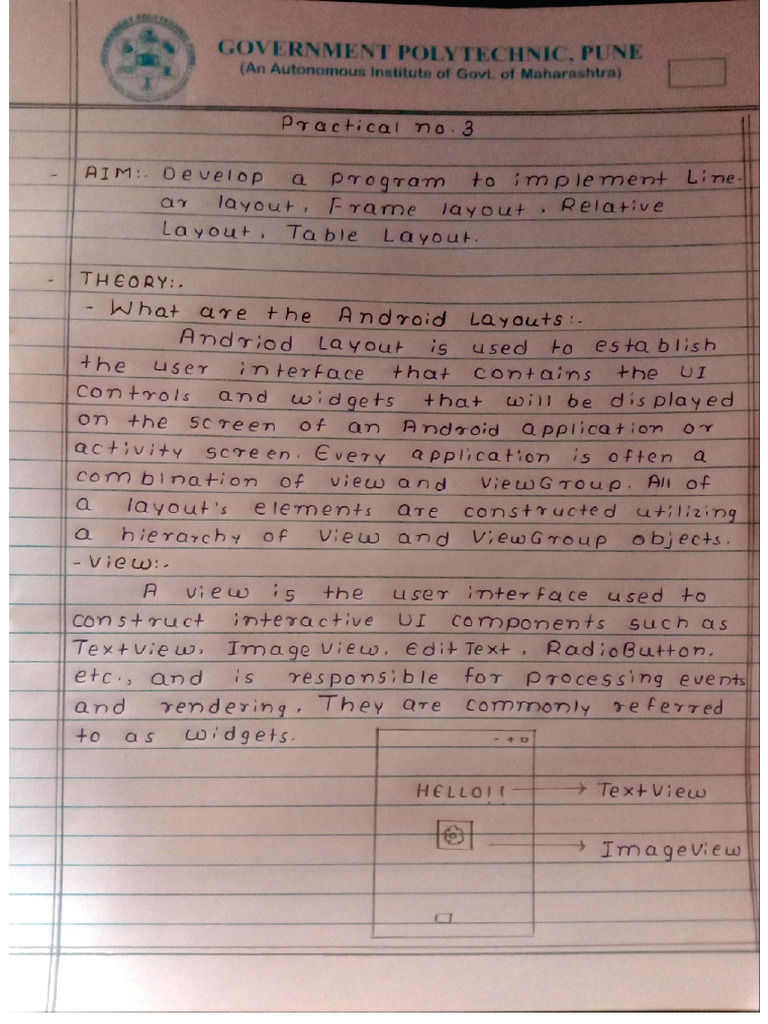 GOVERNMENT POLYTECHNIC, PUNE
(An Autonomous Institute of Govt. of Maharashtra)
Practical no. 3
- AIM:- Develop a program to implement Line-
ar layout, Frame layout, Relative
Layout, Table Layout.
- THEORY:-
- What are the Android Layouts:-
Andriod Layout is used to establish
the user interface that contains the UI
controls and widgets that will be displayed
on the screen of an Android application or
activity screen. Every application is often a
combination of view and ViewGroup. All of
a layout's elements are constructed utilizing
a hierarchy of View and ViewGroup objects.
- View:-
A view is the user interface used to
construct interactive UI components such as
TextView, Image View, Edit Text, RadioButton,
etc., and is responsible for processing events
and rendering. They are commonly referred
to as widgets.
- + o
HELLO!! → TextView
→ ImageView